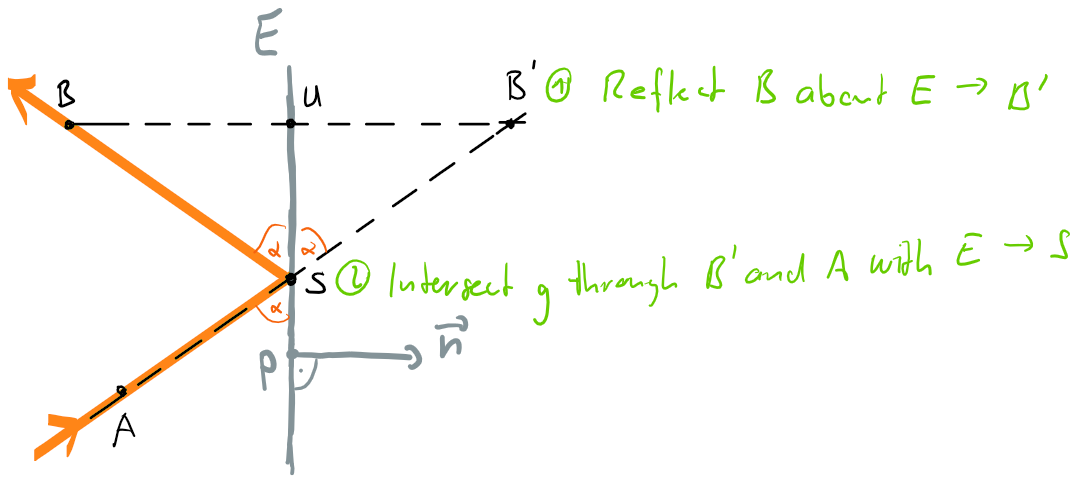 E
B
U
B' ① Reflect B about E → B'
α α
S ② Intersect g through B' and A with E → S
α
P
n⃗
A